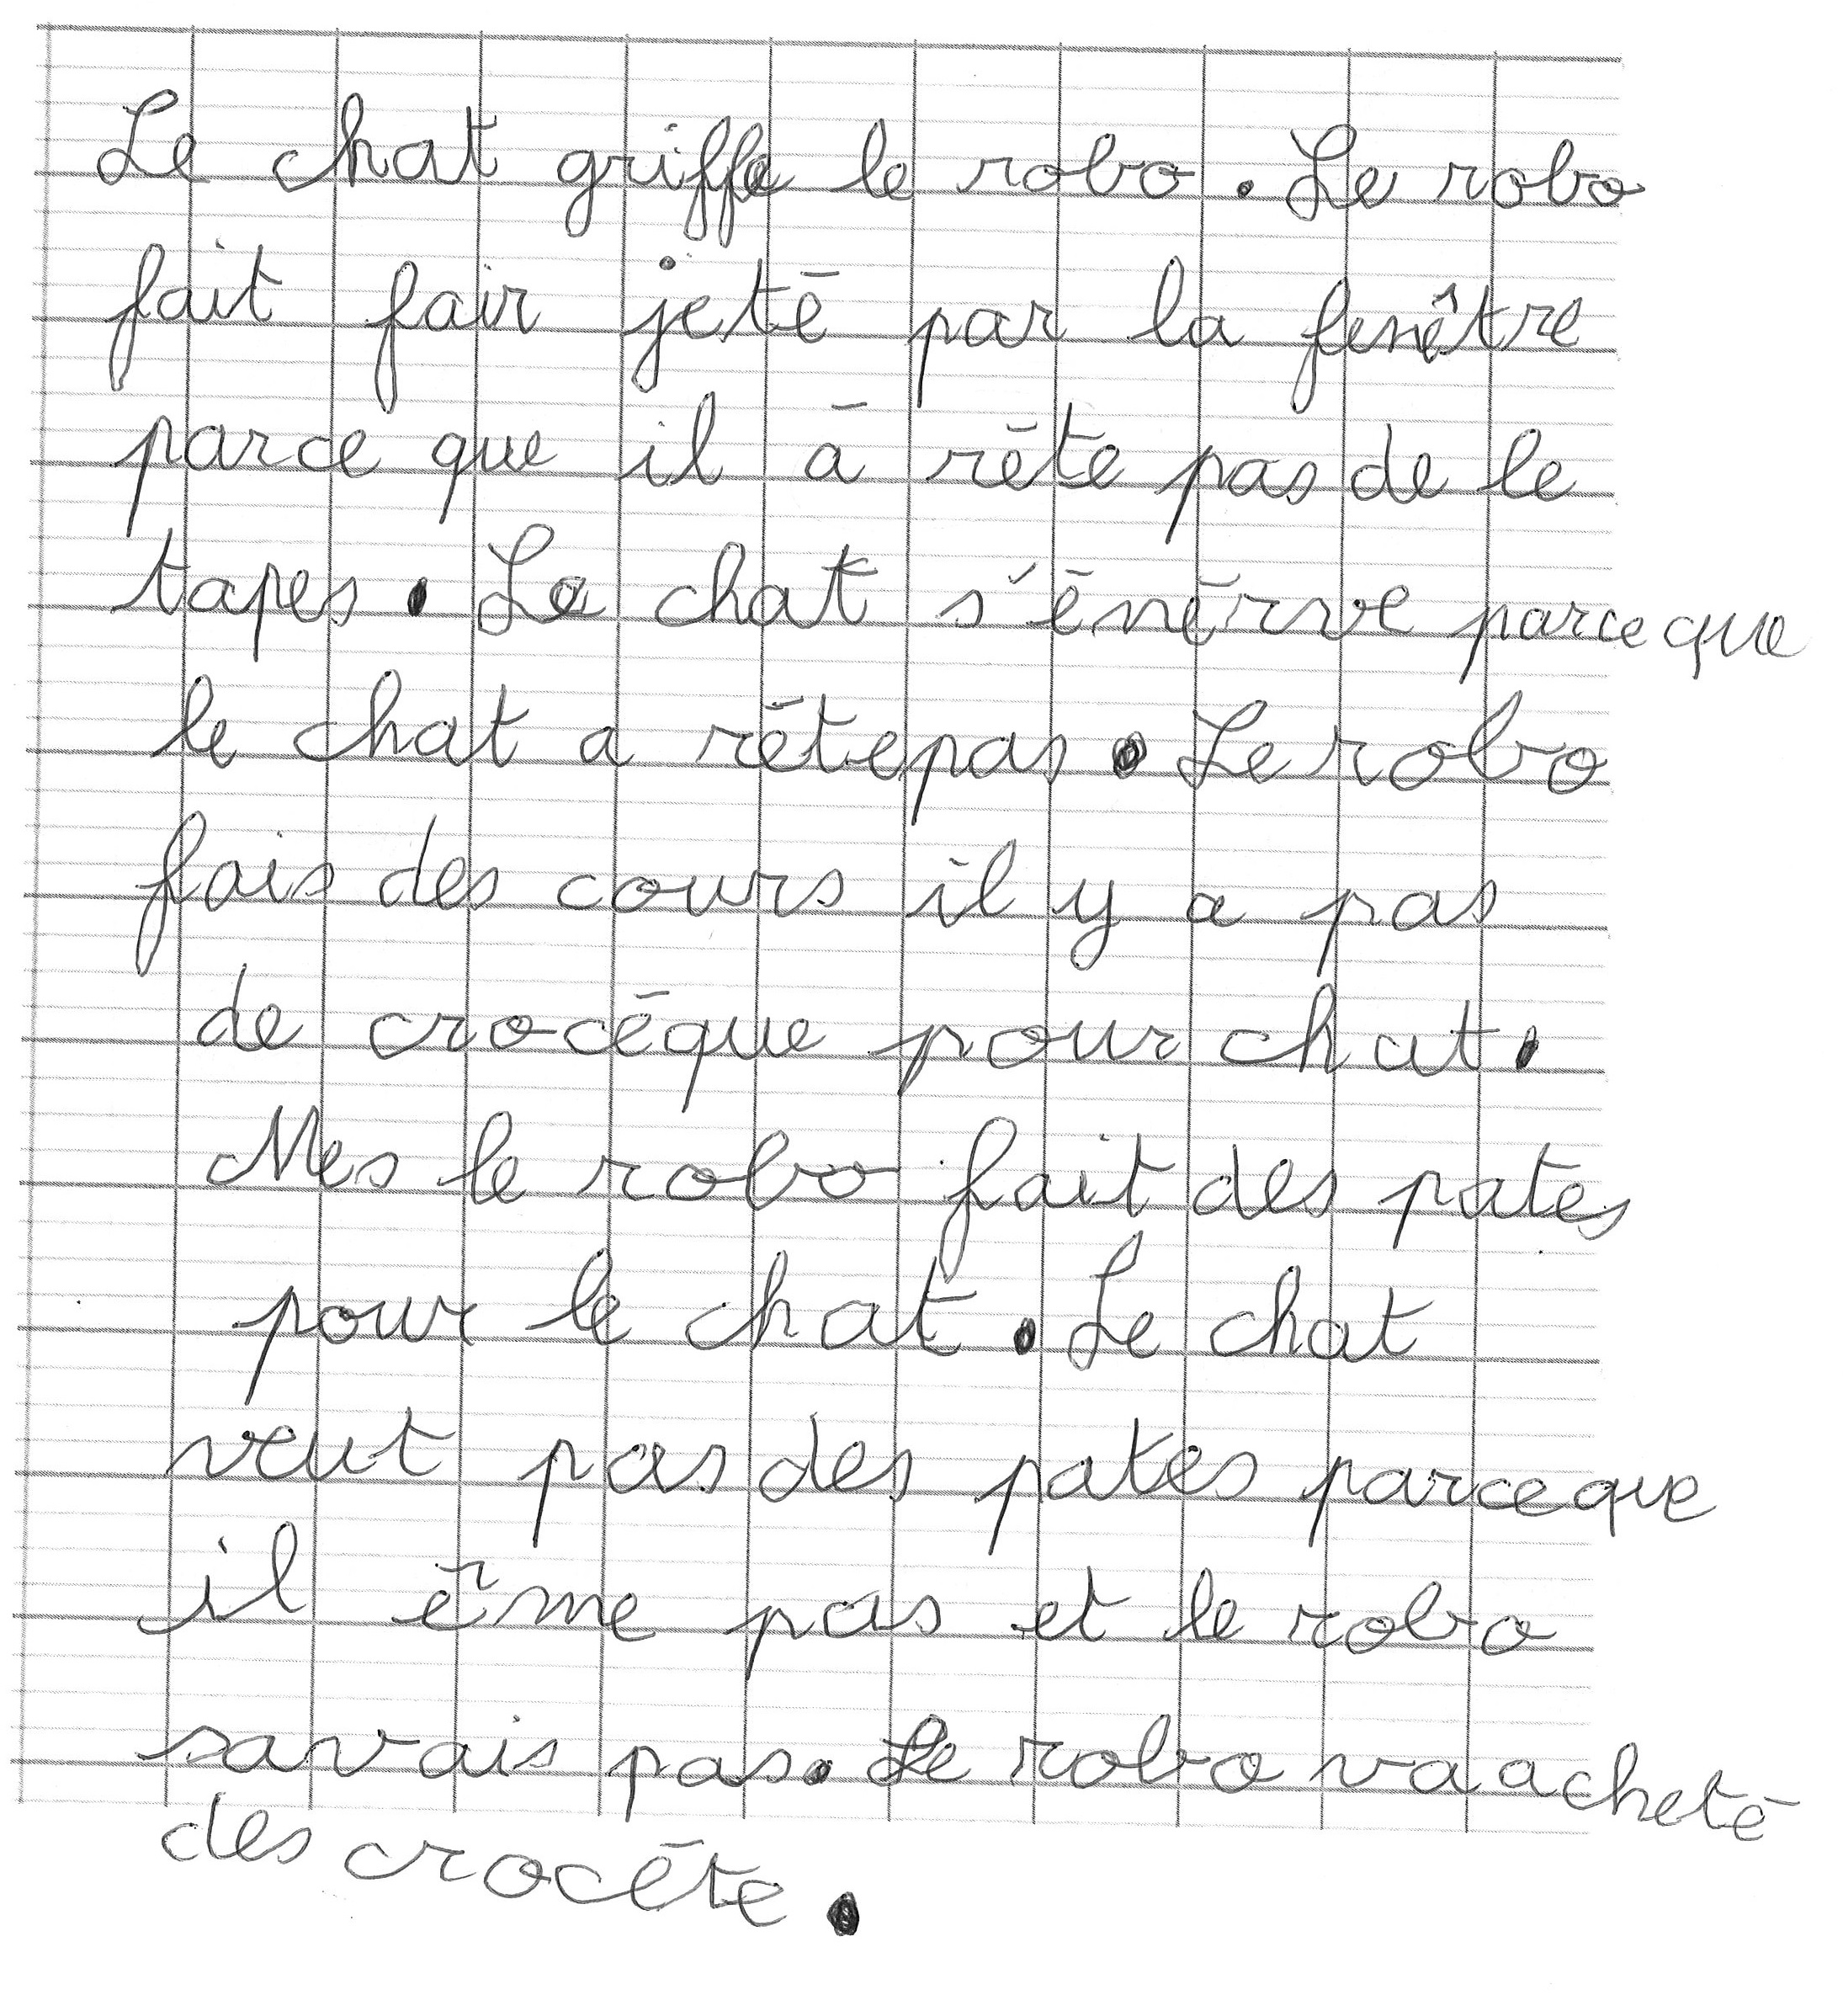 Le chat griffe le robo. Le robo
fait fair jeté par la fenêtre
parce que il à réte pas de le
tapes. Le chat s'énérve parce que
le chat a réte pas. Le robo
fais des cours il y a pas
de crocéque pour chat.
Mes le robo fait des pates
pour le chat. Le chat
veut pas des pates parce que
il ême pas et le robo
savais pas. Le robo va acheté
des crocéte.